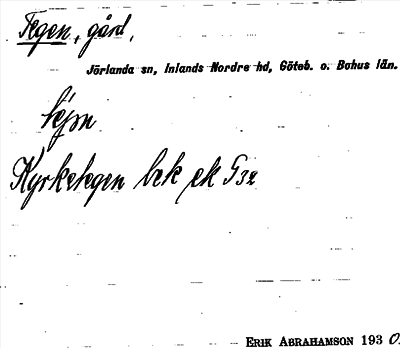 Tegen, gård,
Jörlanda sn, Inlands Nordre hd, Göteb. o. Bohus län.
Kyrketegen bek ek G32
ERIK ABRAHAMSON 1930.